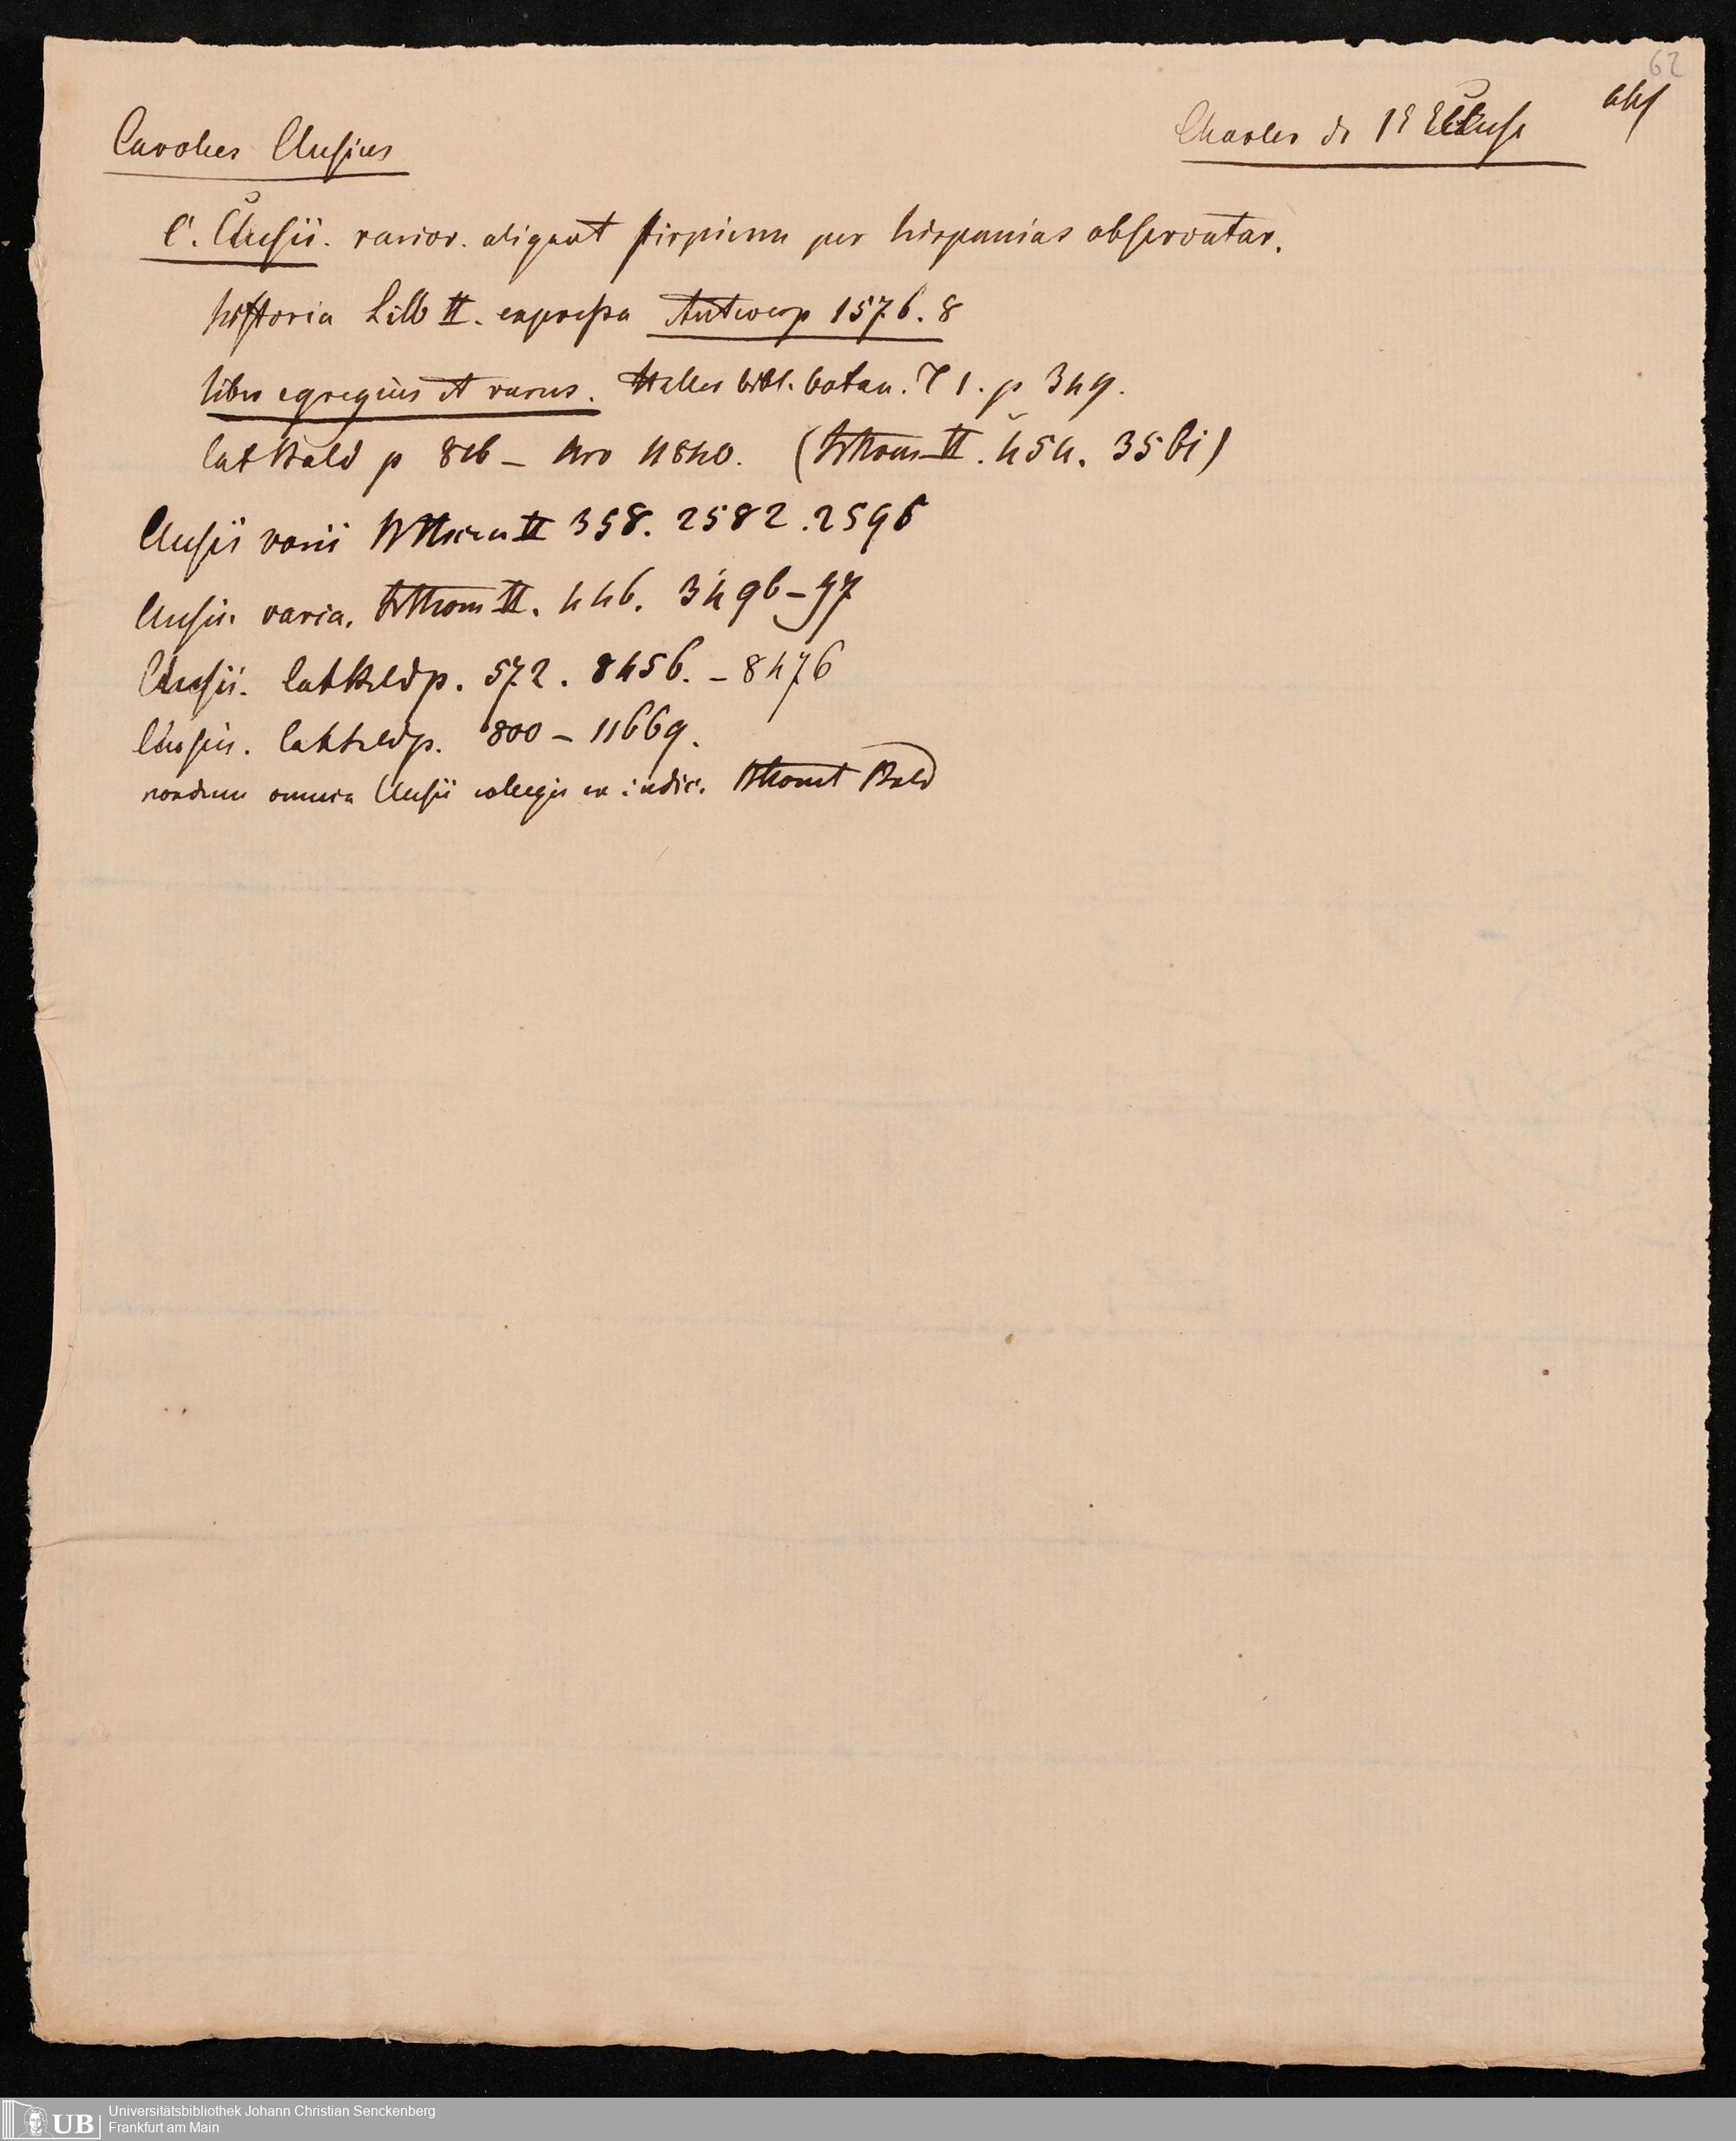 62
Carolus Clusius
Charles de l'Ecluse
C. Clusii. rarior. aliquot stirpium per hispanias observatar.
historia Libb II. expressa Antwerp 1576. 8
liber egregius et rarus. Haller bibl. botan. T 1. p 349.
Cat Bald p 816 – 4840. (II. 454. 3561)
Clusii II 358. 2582. 2596
Clusii. varia. II. 446. 3496–97
Clusii. Cat Bald p. 572. 8456. – 8476
Clusius. Cat Bald p. 800 – 11669.
nondum omnia Clusii collegi ex indic. Bald
UB
Universitätsbibliothek Johann Christian Senckenberg
Frankfurt am Main